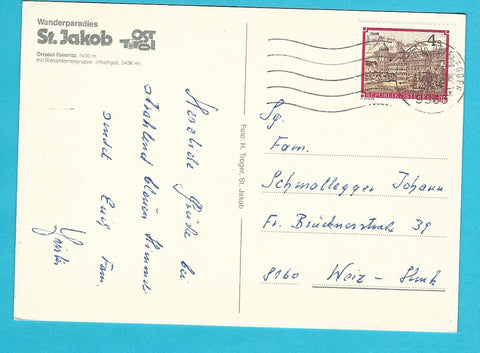 Wanderparadies
St. Jakob OST Tirol
Ortsteil Feistritz, 1400 m
mit Riesenfernergruppe (Hochgall, 3436 m)
Herzliche Grüße bei
strahlend blauem Himmel
sendet Euch Fam.
Foto: H. Troger, St. Jakob
4 S
REPUBLIK ÖSTERREICH
Sg.
Fam.
Schmallegger Johann
Fr. Brücknerstraße 39
8160 Weiz - Stmk